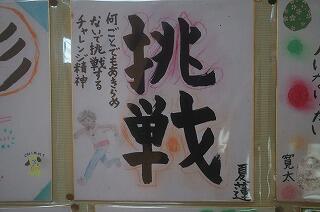 挑戦
何ごとでもあきらめ
ないで挑戦する
チャレンジ精神
夏蓮
寛太